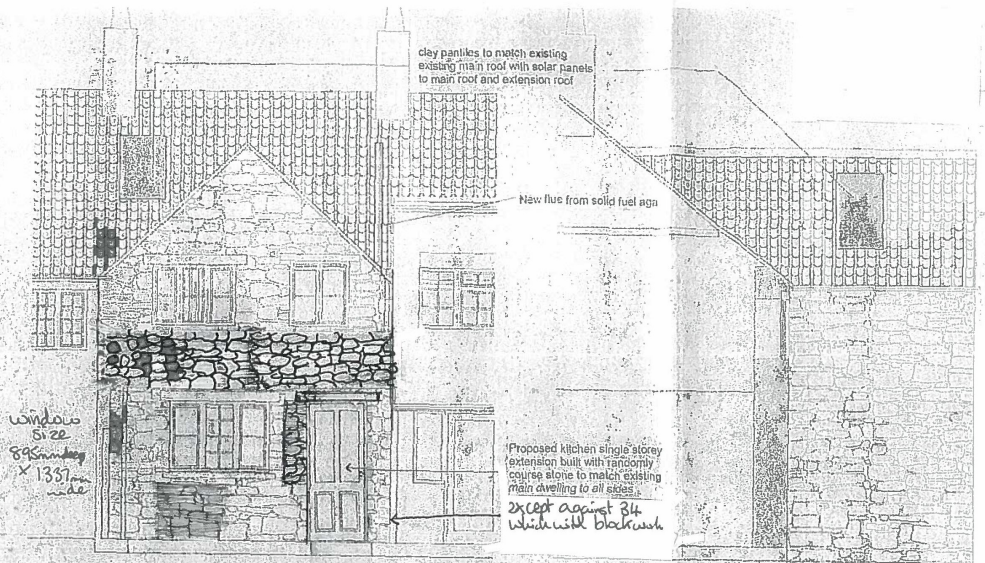 clay pantiles to match existing
existing main roof with solar panels
to main roof and extension roof
New flue from solid fuel aga
window
size
895mm deep
x 1337mm
wide
Proposed kitchen single storey
extension built with randomly
course stone to match existing
main dwelling to all sides.
except against 34
which will blockwork